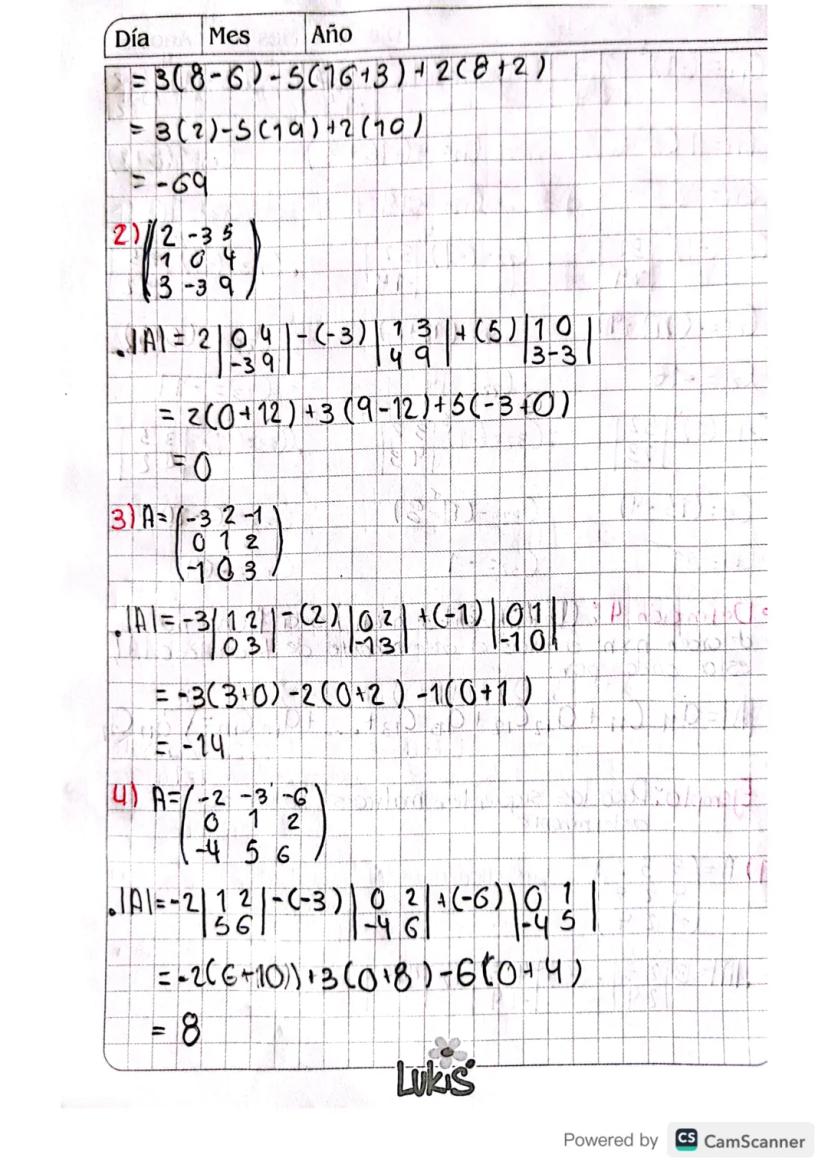 Día Mes Año
= 3(8-6)-5(16+3)+2(8+2)
= 3(2)-5(19)+2(10)
= -69
2) (2 -3 5
1 0 4
3 -3 9)
.|A| = 2 |0 4| -(-3) |1 3| +(5) |1 0|
|-3 9| |4 9| |3 -3|
= 2(0+12)+3(9-12)+5(-3+0)
= 0
3) A= (-3 2 -1
0 1 2
-1 0 3)
.|A| = -3 |1 2| -(2) |0 2| +(-1) |0 1|
|0 3| |-1 3| |-1 0|
= -3(3+0)-2(0+2)-1(0+1)
= -14
4) A= (-2 -3 -6
0 1 2
-4 5 6)
.|A| = -2 |1 2| -(-3) |0 2| +(-6) |0 1|
|5 6| |-4 6| |-4 5|
= -2(6-10)+3(0+8)-6(0+4)
= 8
Lukis
Powered by CS CamScanner